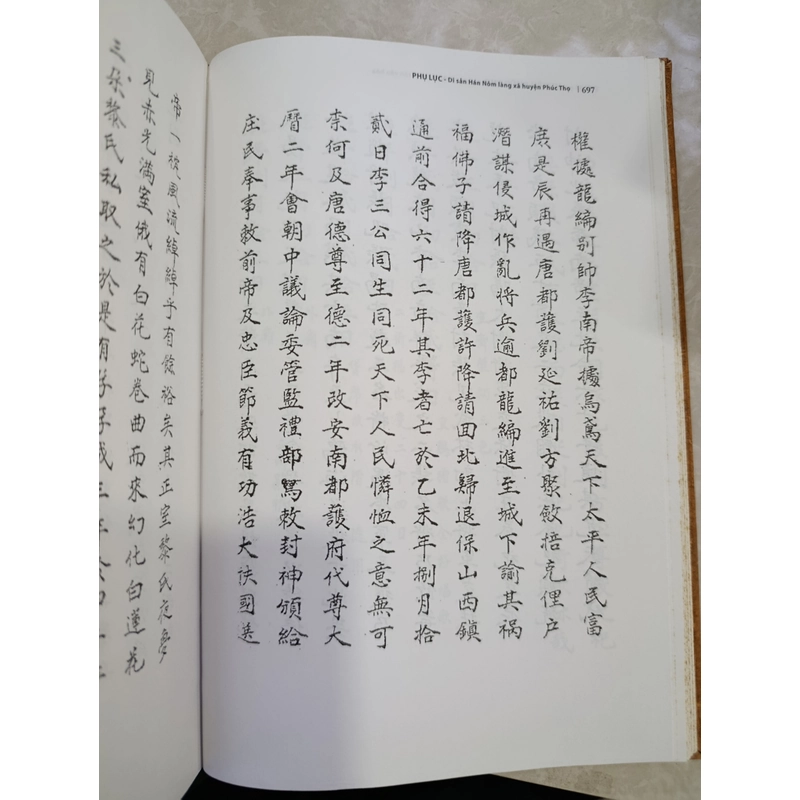 PHỤ LỤC - Di sản Hán Nôm làng xã huyện Phúc Thọ | 697
權據龍編别帥李南帝據烏鳶天下太平人民富
庶是辰再遇唐都護劉延祐劉方聚斂掊克俚户
潛謀侵城作亂將兵逾都龍編進至城下諭其禍
福佛子請降唐都護許降請回北歸退保山西鎮
通前合得六十二年其李者亡於乙未年捌月拾
貳日李三公同生同死天下人民憐恤之意無可
柰何及唐德尊至德二年改安南都護府代尊大
曆二年會朝中議論委管監禮部篤敕封神頒給
庄民奉事敕前帝及忠臣節義有功浩大扶國
帝一被風流綽綽乎有餘裕矣其正室黎氏夜夢
見赤光滿室俄有白花蛇卷曲而來幻化白蓮花
三朵黎氏私取之於是有孕